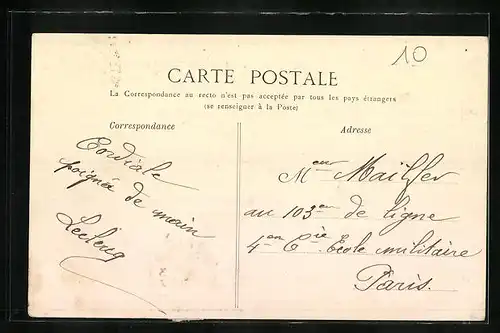 10
CARTE POSTALE
La Correspondance au recto n'est pas acceptée par tous les pays étrangers
(se renseigner à la Poste)
Correspondance
Cordiale
poignée de main
Leclercq
Adresse
Mʳ
au 103ᵉᵐ de ligne
4ᵉᵐ Cⁱᵉ École militaire
Paris.